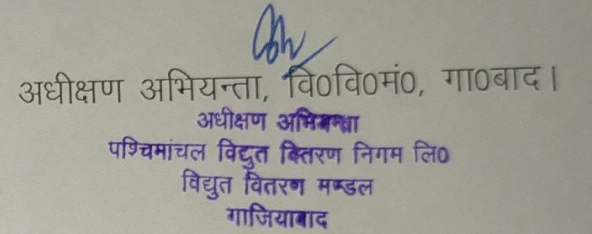 अधीक्षण अभियन्ता, वि0वि0मं0, गा0बाद।
अधीक्षण अभियन्ता
पश्चिमांचल विद्युत वितरण निगम लि0
विद्युत वितरण मण्डल
गाजियाबाद